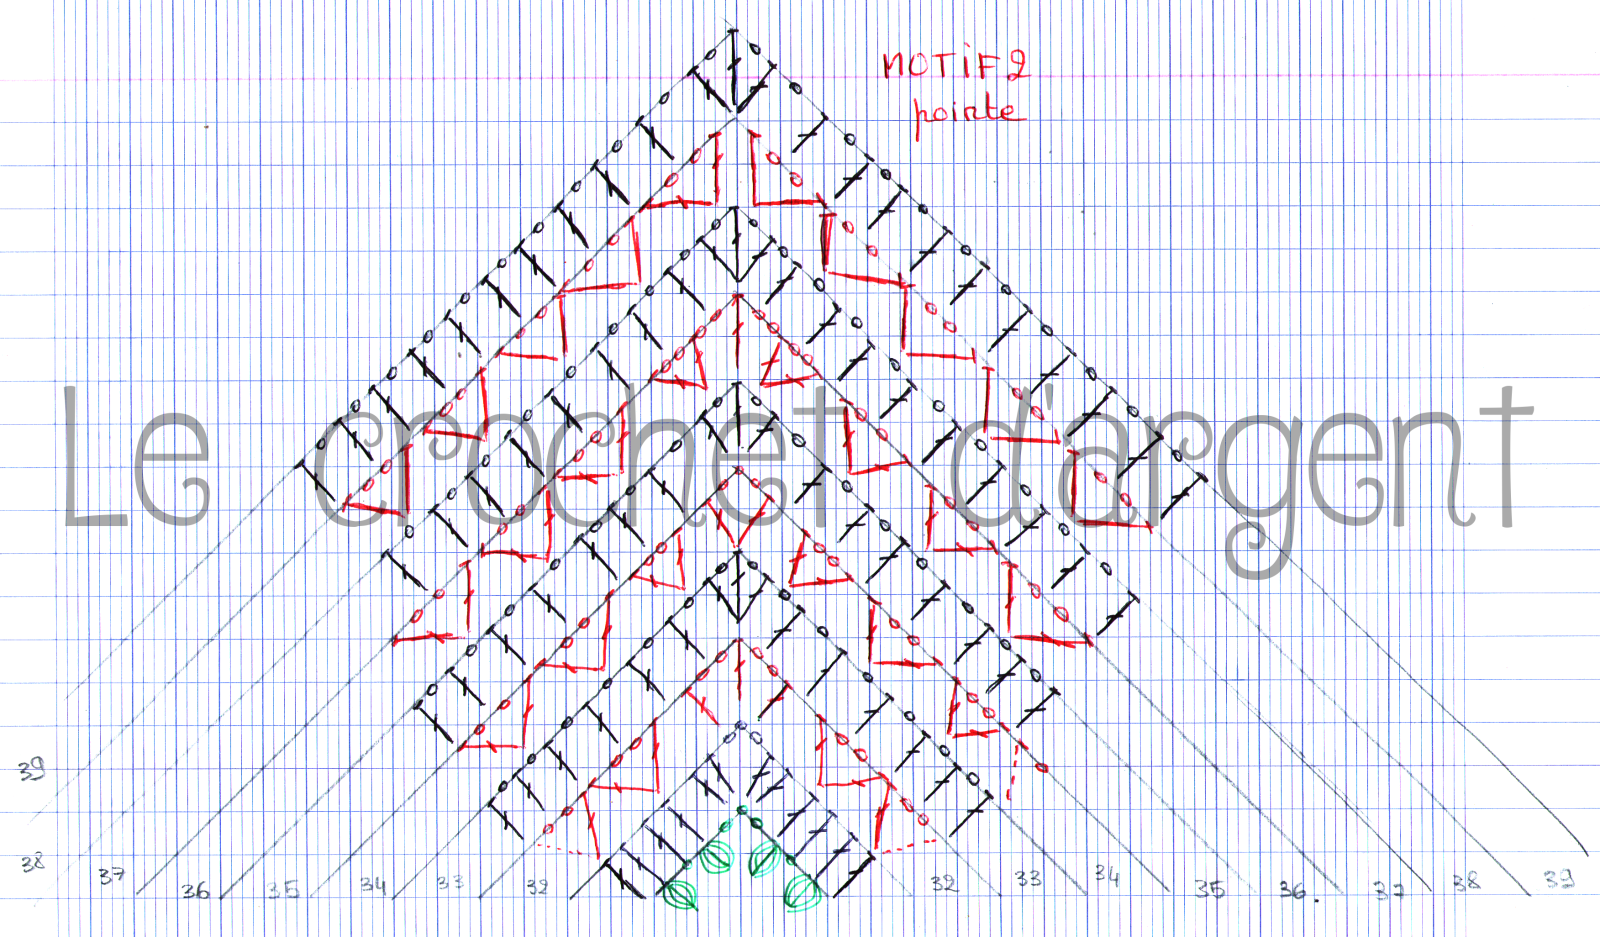 MOTIF 2
pointe
Le crochet d'argent
39
38
37
36
35
34
33
32
32
33
34
35
36.
37
38
39